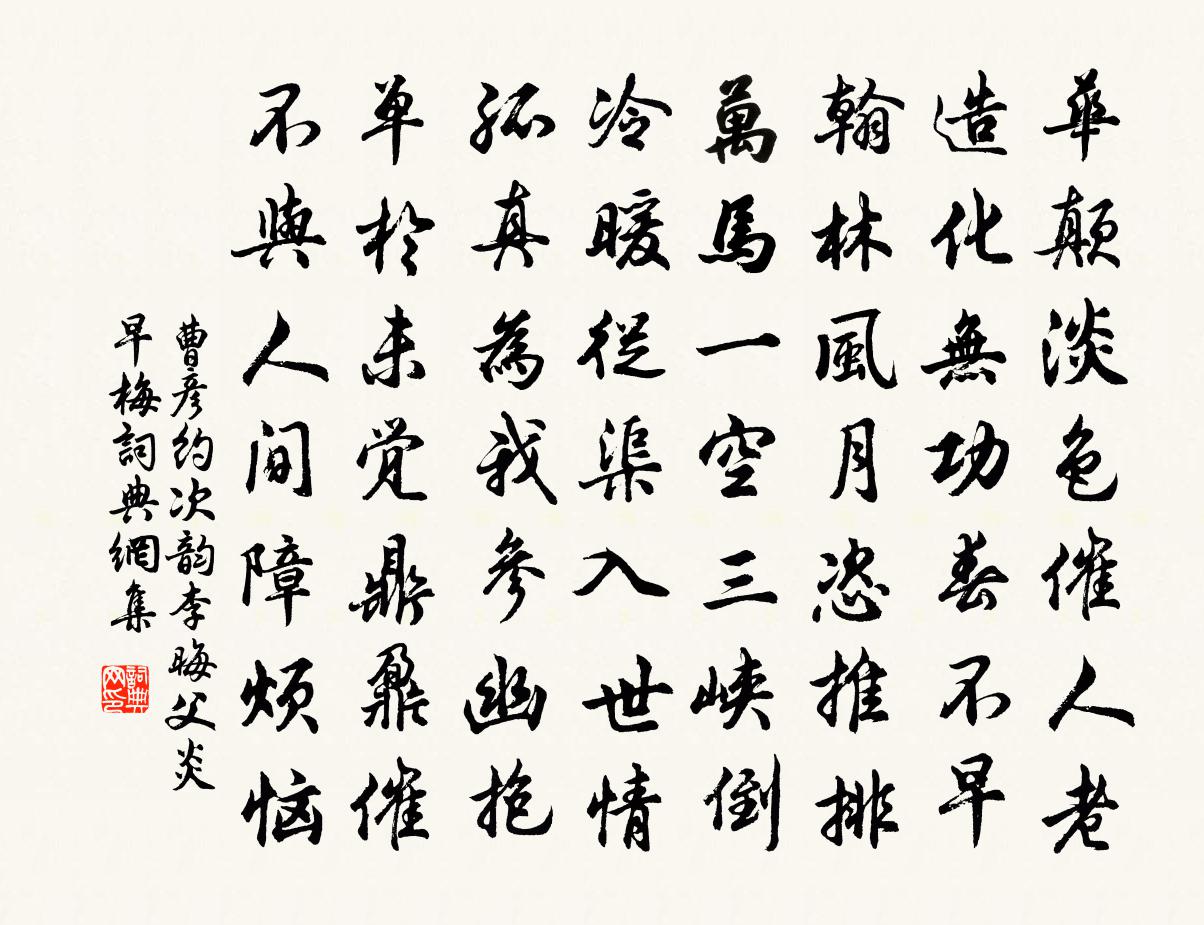 華顛淡色催人老
造化無功春不早
翰林風月恣推排
萬馬一空三峽倒
冷暖從渠入世情
孤真為我參幽抱
单於未觉鼎鼐催
不與人间障烦恼
曹彦約次韵李晦父炎
早梅詞典網集
詞典
网印